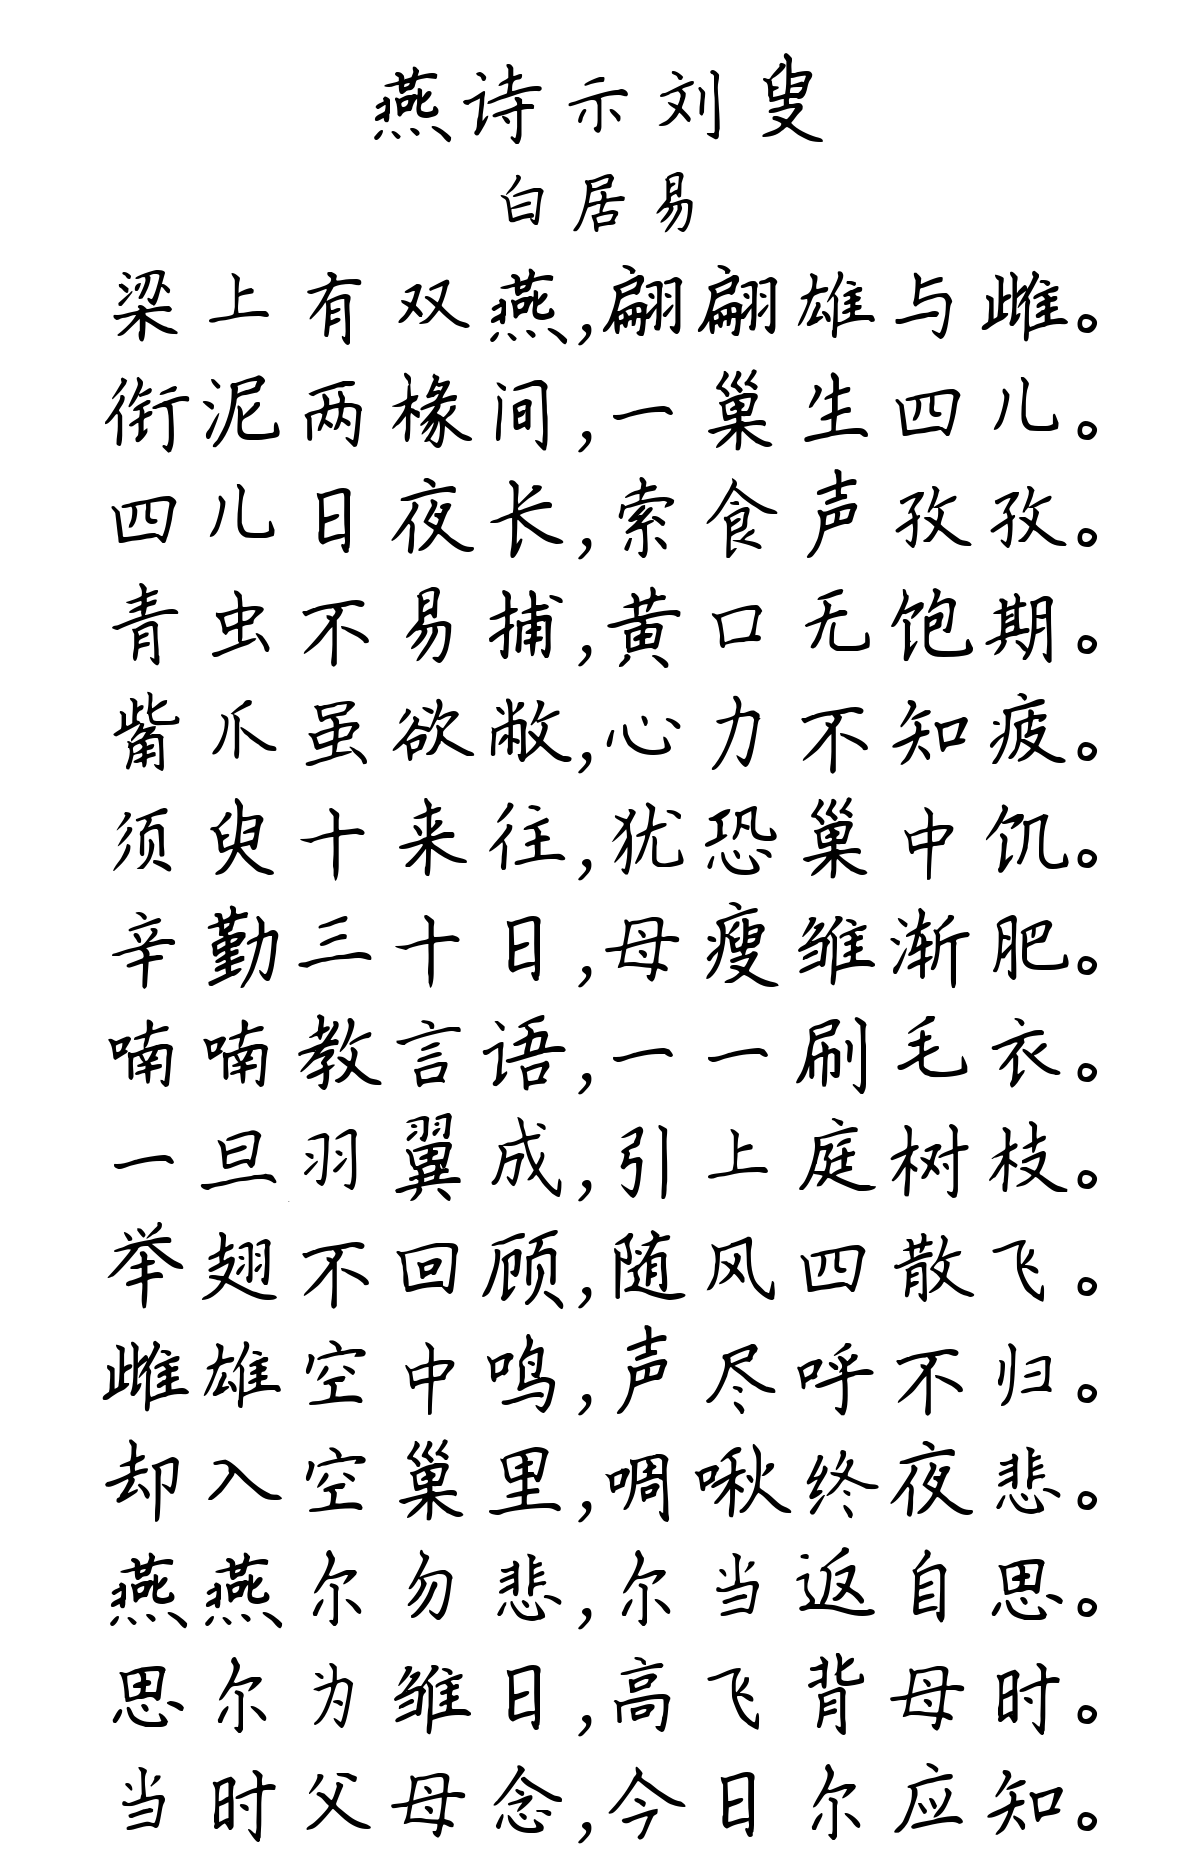 燕诗示刘叟
白居易
梁上有双燕,翩翩雄与雌。
衔泥两椽间,一巢生四儿。
四儿日夜长,索食声孜孜。
青虫不易捕,黄口无饱期。
觜爪虽欲敝,心力不知疲。
须臾十来往,犹恐巢中饥。
辛勤三十日,母瘦雏渐肥。
喃喃教言语,一一刷毛衣。
一旦羽翼成,引上庭树枝。
举翅不回顾,随风四散飞。
雌雄空中鸣,声尽呼不归。
却入空巢里,啁啾终夜悲。
燕燕尔勿悲,尔当返自思。
思尔为雏日,高飞背母时。
当时父母念,今日尔应知。